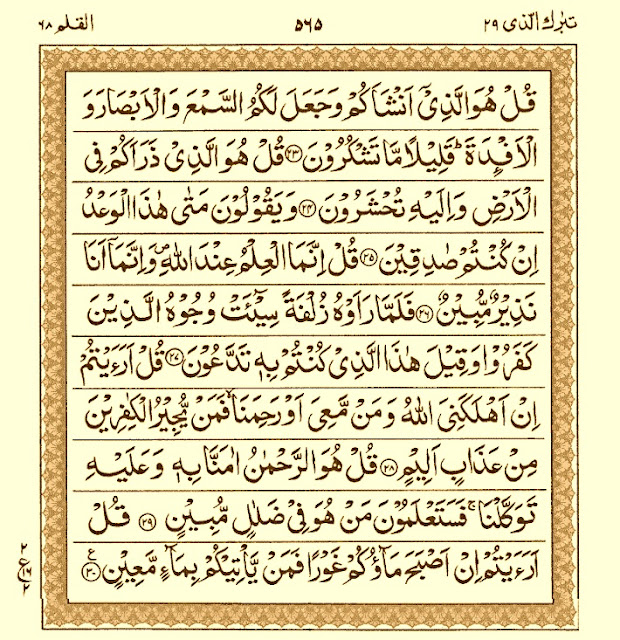 تبٰرك الذی ۲۹
۵۶۵
القلم ۶۸
قُلْ هُوَ الَّذِیْۤ اَنْشَاَكُمْ وَجَعَلَ لَكُمُ السَّمْعَ وَالْاَبْصَارَ وَ
الْاَفْـِٕدَةَ ؕ قَلِیْلًا مَّا تَشْكُرُوْنَ ۲۳ قُلْ هُوَ الَّذِیْ ذَرَاَكُمْ فِی
الْاَرْضِ وَاِلَیْهِ تُحْشَرُوْنَ ۲۴ وَیَقُوْلُوْنَ مَتٰی هٰذَا الْوَعْدُ
اِنْ كُنْتُمْ صٰدِقِیْنَ ۲۵ قُلْ اِنَّمَا الْعِلْمُ عِنْدَ اللّٰهِ ۪ وَاِنَّمَاۤ اَنَا
نَذِیْرٌ مُّبِیْنٌ ۲۶ فَلَمَّا رَاَوْهُ زُلْفَةً سِیْٓـَٔتْ وُجُوْهُ الَّذِیْنَ
كَفَرُوْا وَقِیْلَ هٰذَا الَّذِیْ كُنْتُمْ بِهٖ تَدَّعُوْنَ ۲۷ قُلْ اَرَءَیْتُمْ
اِنْ اَهْلَكَنِیَ اللّٰهُ وَمَنْ مَّعِیَ اَوْ رَحِمَنَا ۙ فَمَنْ یُّجِیْرُ الْكٰفِرِیْنَ
مِنْ عَذَابٍ اَلِیْمٍ ۲۸ قُلْ هُوَ الرَّحْمٰنُ اٰمَنَّا بِهٖ وَعَلَیْهِ
تَوَكَّلْنَا ۚ فَسَتَعْلَمُوْنَ مَنْ هُوَ فِیْ ضَلٰلٍ مُّبِیْنٍ ۲۹ قُلْ
اَرَءَیْتُمْ اِنْ اَصْبَحَ مَآؤُكُمْ غَوْرًا فَمَنْ یَّاْتِیْكُمْ بِمَآءٍ مَّعِیْنٍ ۳۰ ع
۲
ع
۱۶
۲